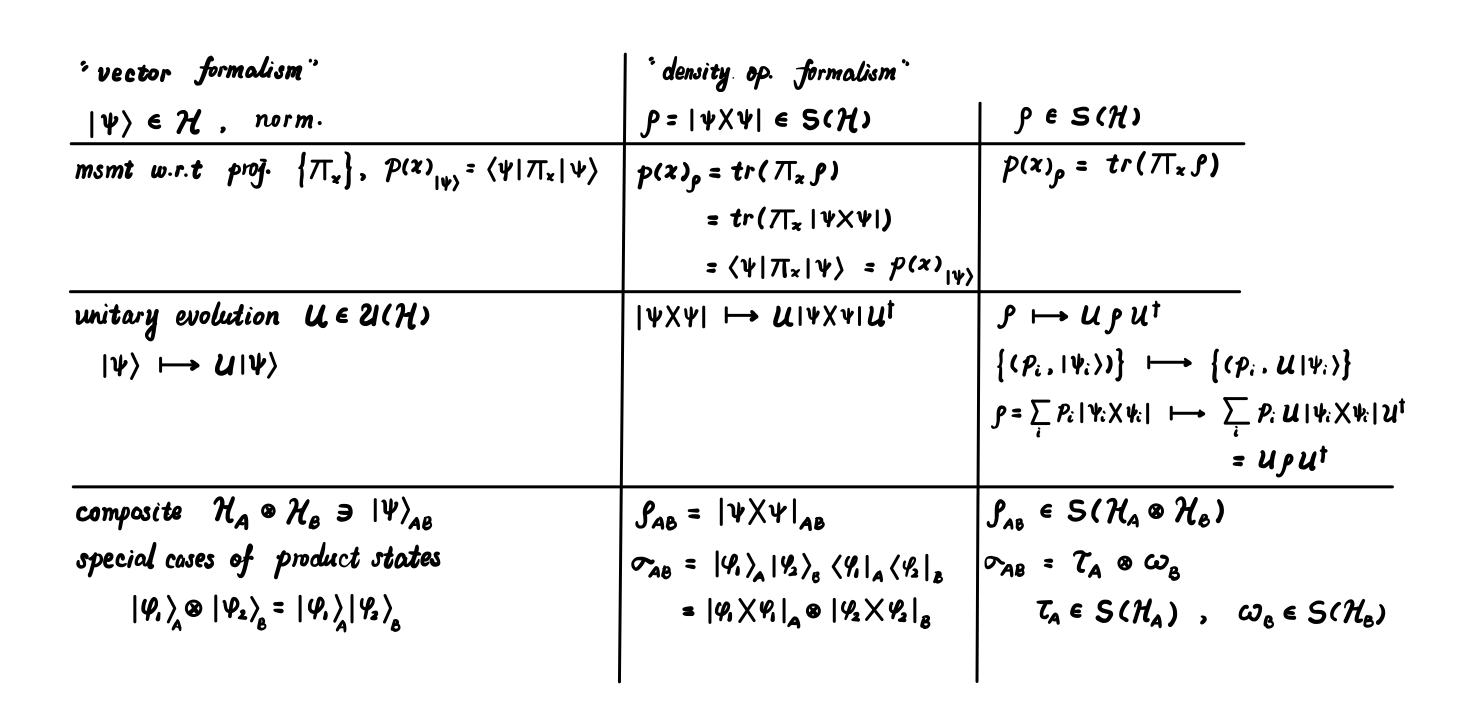 "vector formalism"
|ψ⟩ ∈ ℋ , norm.
"density op. formalism"
ρ = |ψ⟩⟨ψ| ∈ S(ℋ)
ρ ∈ S(ℋ)
msmt w.r.t proj. {π_x}, p(x)_|ψ⟩ = ⟨ψ|π_x|ψ⟩
p(x)_ρ = tr(π_x ρ)
= tr(π_x |ψ⟩⟨ψ|)
= ⟨ψ|π_x|ψ⟩ = p(x)_|ψ⟩
p(x)_ρ = tr(π_x ρ)
unitary evolution U ∈ 𝒰(ℋ)
|ψ⟩ ↦ U|ψ⟩
|ψ⟩⟨ψ| ↦ U|ψ⟩⟨ψ|U†
ρ ↦ U ρ U†
{(p_i, |ψ_i⟩)} ↦ {(p_i, U|ψ_i⟩}
ρ = ∑_i p_i |ψ_i⟩⟨ψ_i| ↦ ∑_i p_i U|ψ_i⟩⟨ψ_i|U†
= U ρ U†
composite ℋ_A ⊗ ℋ_B ∋ |ψ⟩_AB
special cases of product states
|φ_1⟩_A ⊗ |φ_2⟩_B = |φ_1⟩_A |φ_2⟩_B
ρ_AB = |ψ⟩⟨ψ|_AB
σ_AB = |φ_1⟩_A |φ_2⟩_B ⟨φ_1|_A ⟨φ_2|_B
= |φ_1⟩⟨φ_1|_A ⊗ |φ_2⟩⟨φ_2|_B
ρ_AB ∈ S(ℋ_A ⊗ ℋ_B)
σ_AB = τ_A ⊗ ω_B
τ_A ∈ S(ℋ_A) , ω_B ∈ S(ℋ_B)